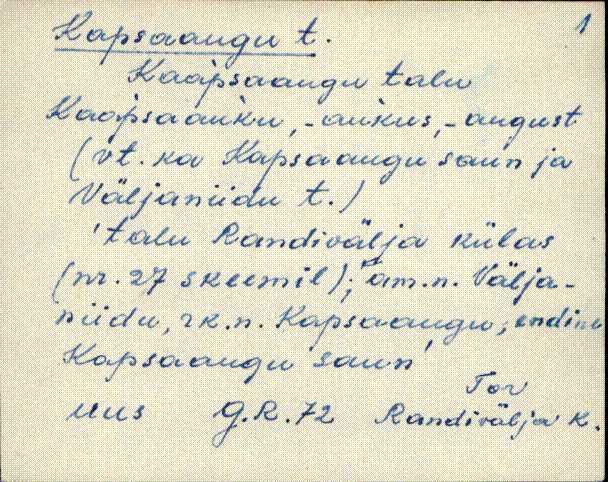 1
Kapsaaugu t.
Kaapsaaugu talu
Kaapsaauku, -aukus, -august
(vt. ka Kapsaaugu saun ja
Väljaniidu t.)
'talu Randivälja külas
(nr. 27 skeemil); am.n. Välja-
niidu, rk.n. Kapsaaugu; endine
Kapsaaugu saun'
Tor
uus G.R.72 Randivälja k.